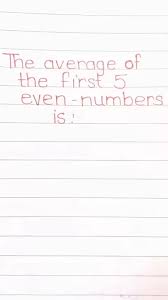 The average of
the first 5
even-numbers
is: